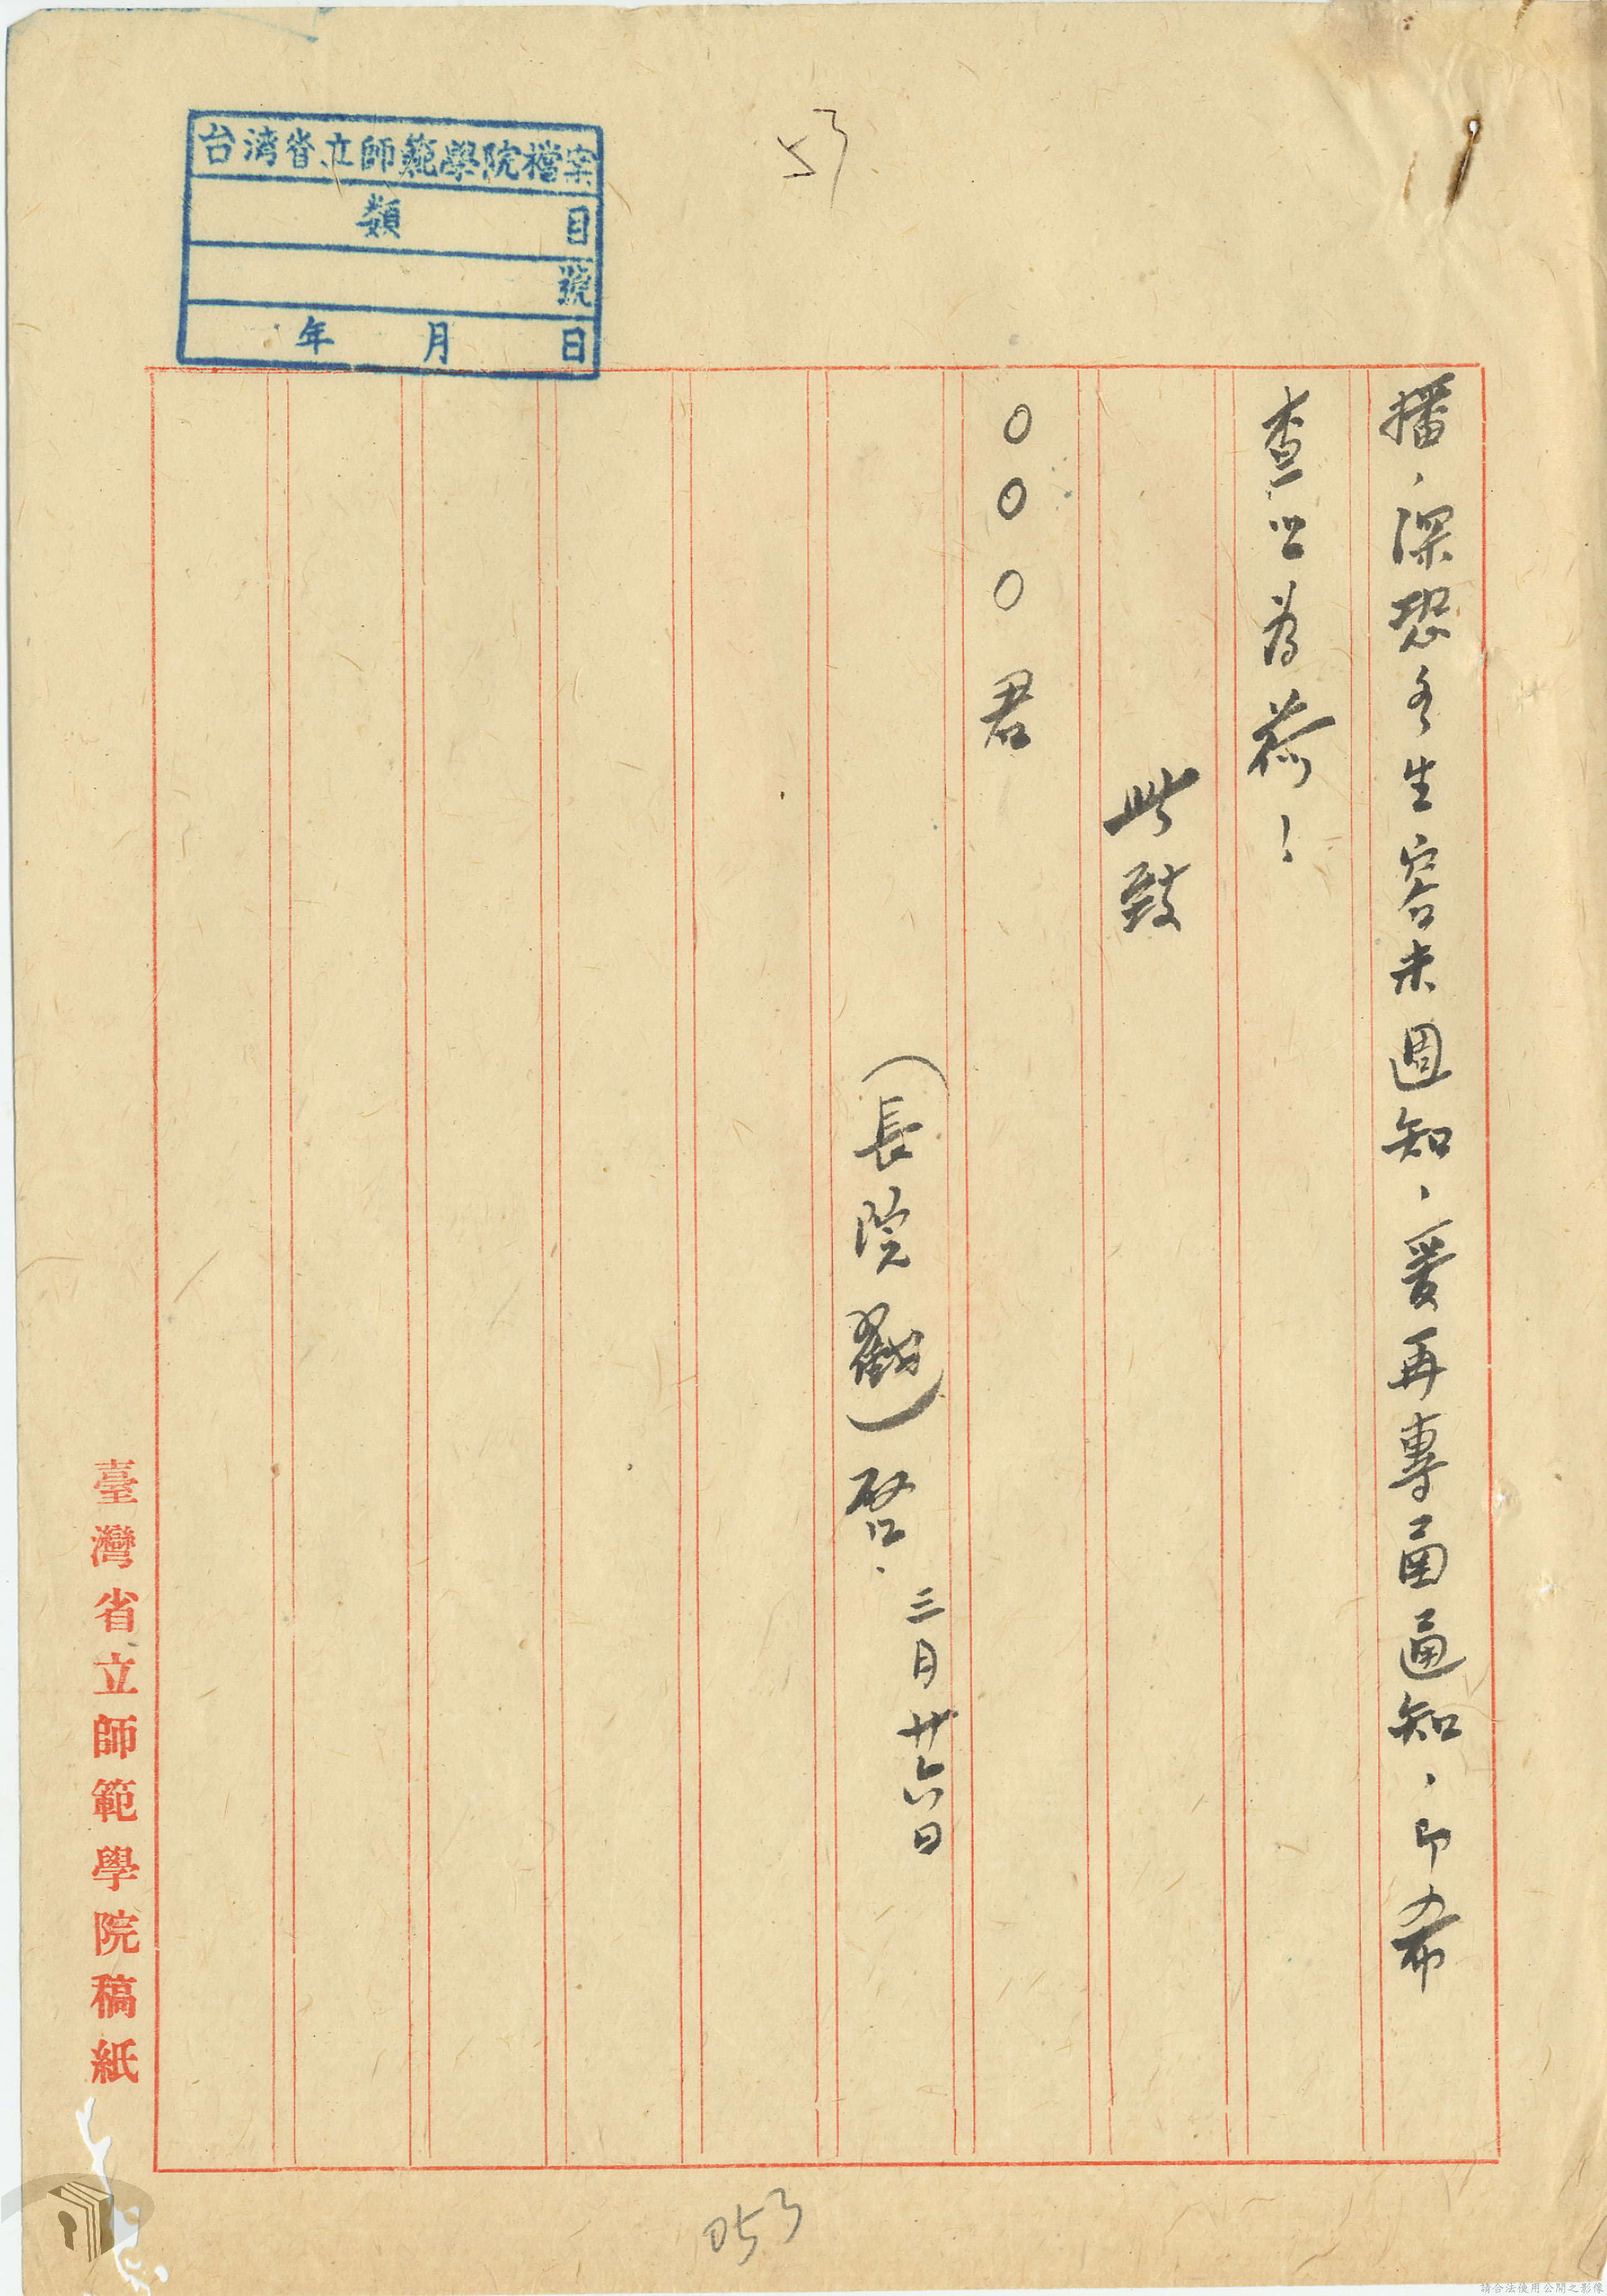 53
台湾省立師範學院檔案
類 目
號
年 月 日
播，深恐各生容未週知，爰再專函通知，即希
查照為荷！
此致
○○○君
（長院戳）啓．三月廿六日
臺灣省立師範學院稿紙
053
請合法使用公開之影像